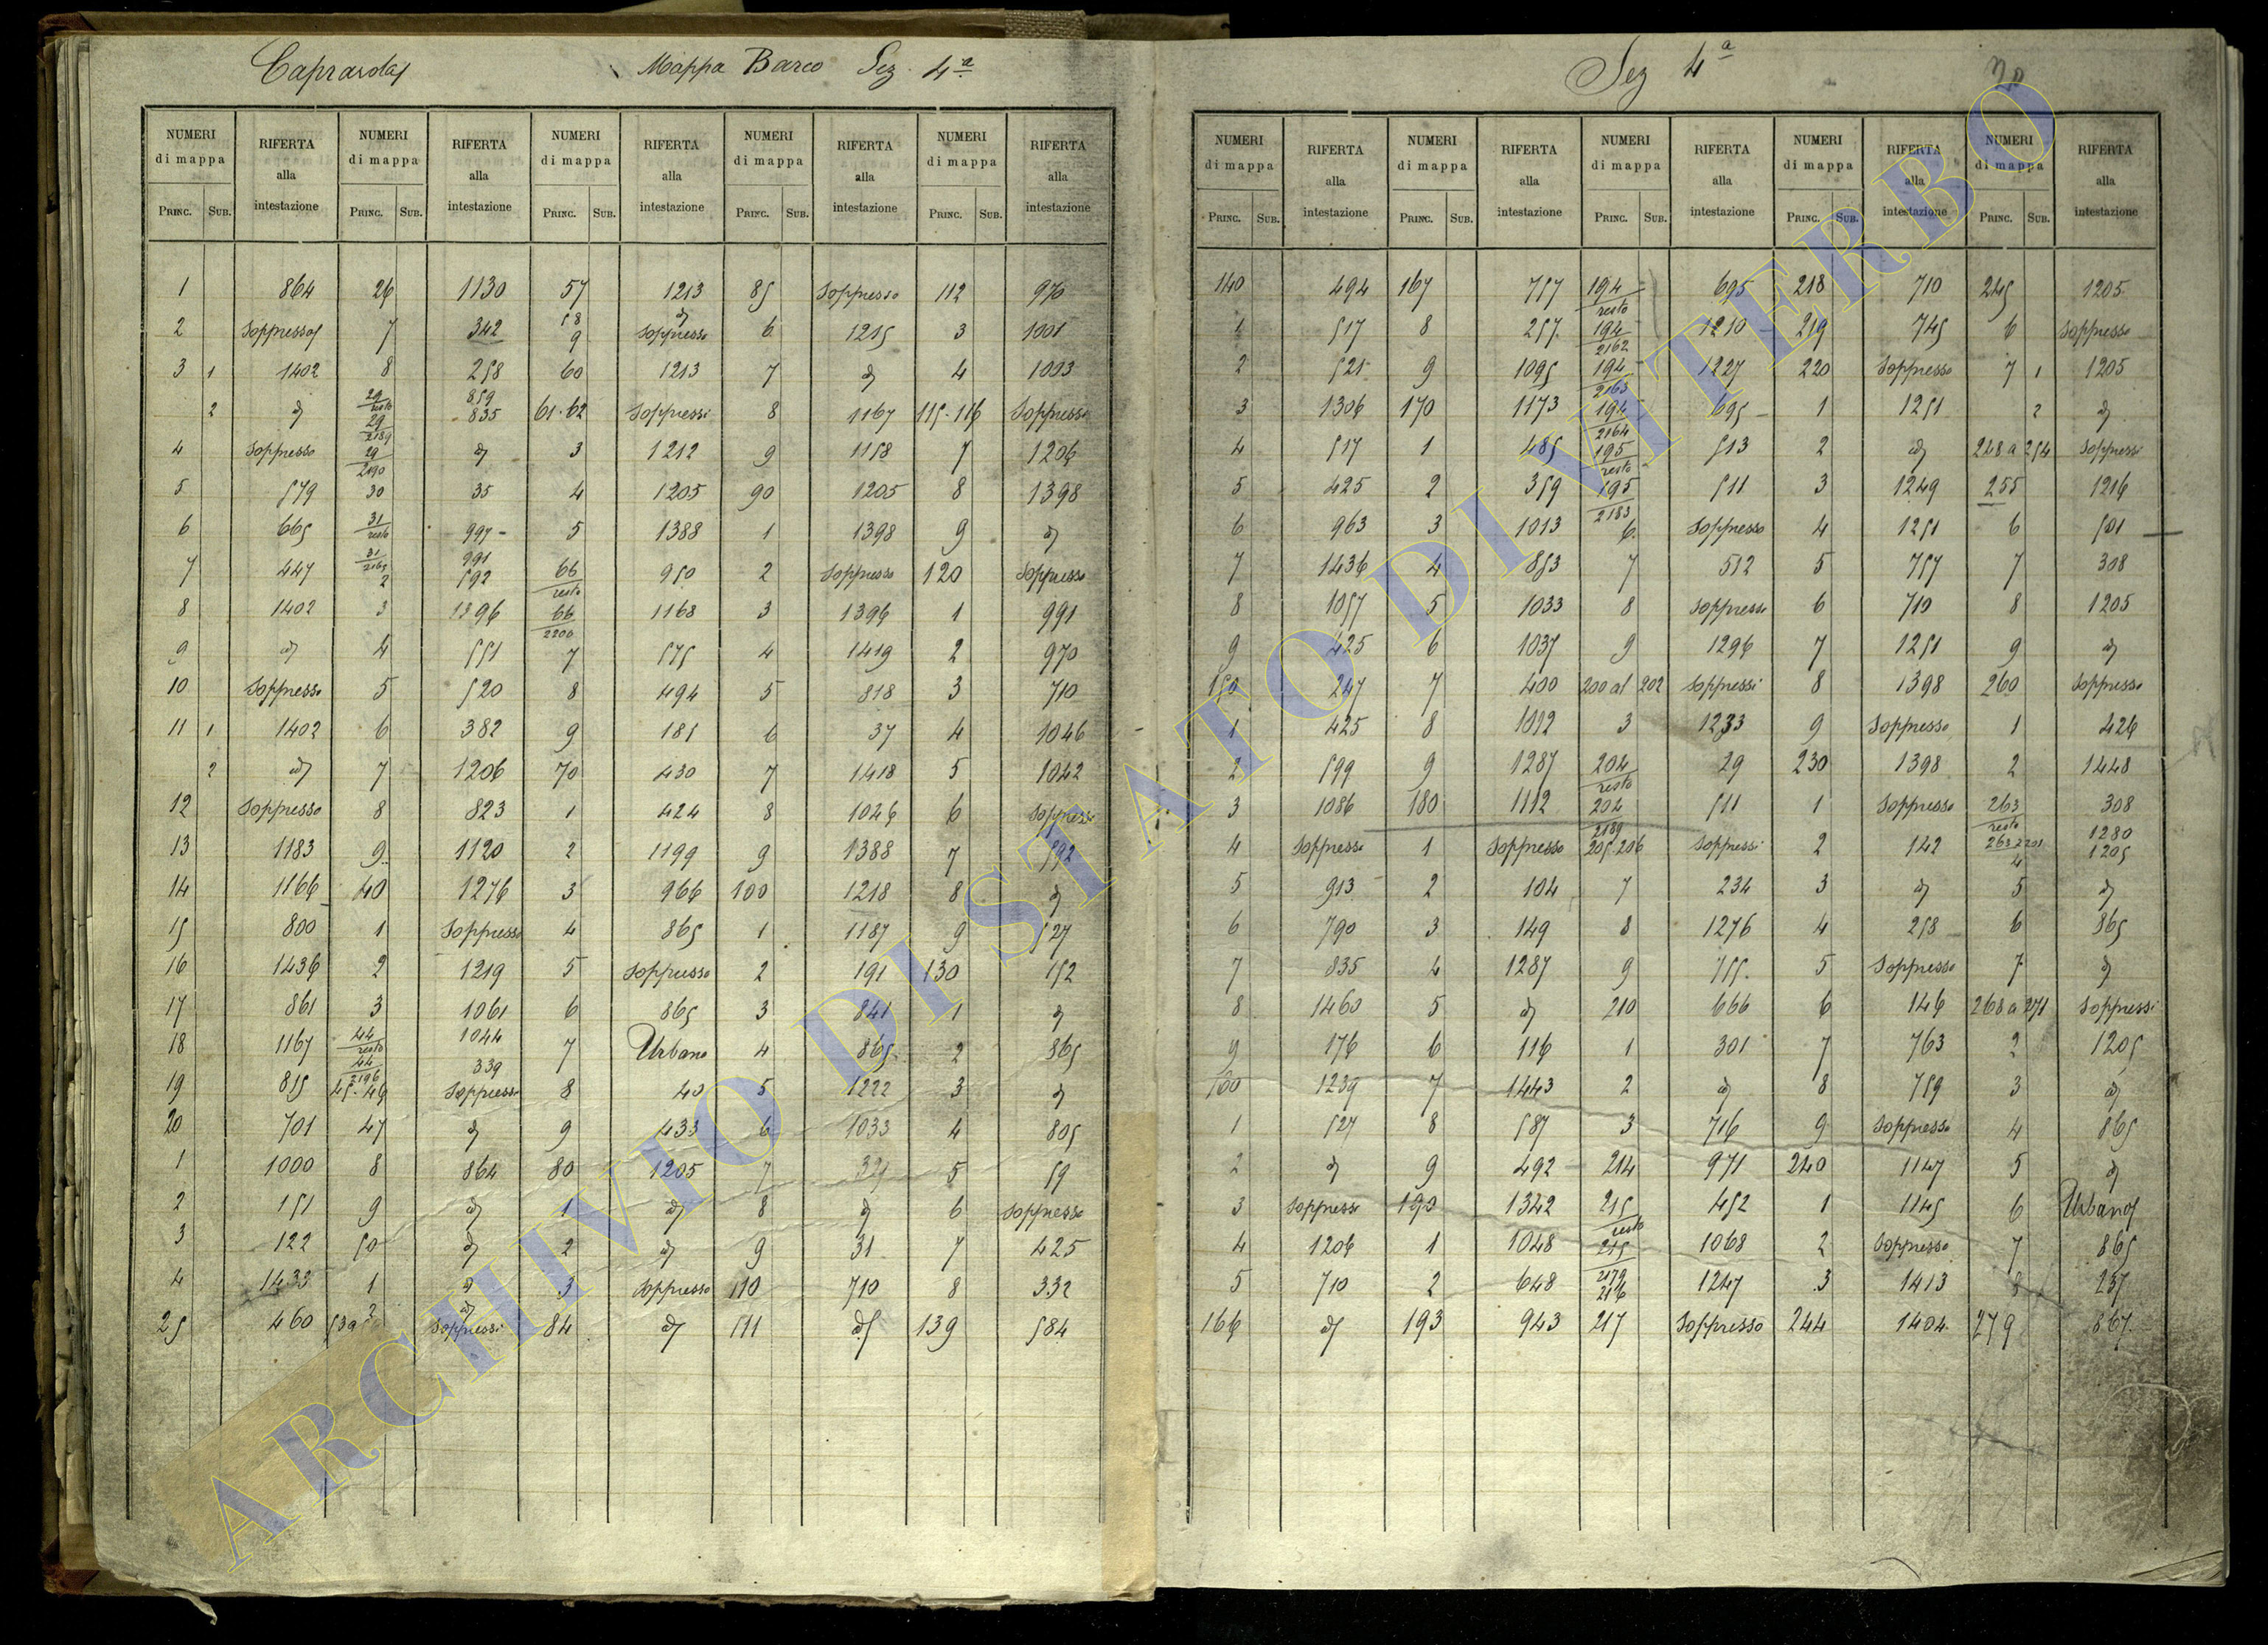 Caprarola Mappa Barco Sez. 4ª
NUMERI di mappa RIFERTA alla intestazione NUMERI di mappa RIFERTA alla intestazione NUMERI di mappa RIFERTA alla intestazione NUMERI di mappa RIFERTA alla intestazione NUMERI di mappa RIFERTA alla intestazione
PRINC. SUB. PRINC. SUB. PRINC. SUB. PRINC. SUB. PRINC. SUB.
1 864 26 1130 57 1213 85 Soppresso 112 970
2 Soppresso 7 342 58 9 d Soppresso 6 1215 3 1001
3 1 1402 8 258 60 1213 7 d 4 1093
2 d 29/resto 859 29/2189 835 61.62 Soppressi 8 1167 115-116 Soppressi
4 Soppresso 29/2190 d 3 1212 9 1158 7 1206
5 579 30 35 4 1205 90 1205 8 1398
6 665 31/resto 997 5 1388 1 1398 9 d
7 447 31/2165 991 2 592 66/resto 950 2 Soppresso 120 Soppresso
8 1402 3 1396 66/2206 1168 3 1396 1 991
9 d 4 551 7 575 4 1419 2 970
10 Soppresso 5 520 8 494 5 818 3 710
11 1 1402 6 382 9 185 6 37 4 1046
2 d 7 1206 70 430 7 1418 5 1042
12 Soppresso 8 823 1 424 8 1046 6 Soppresso
13 1183 9 1120 2 1199 9 1388 7 592
14 1166 40 1276 3 966 100 1218 8 d
15 800 1 Soppresso 4 865 1 1187 9 527
16 1436 2 1219 5 Soppresso 2 191 130 152
17 861 3 1061 6 865 3 841 1 d
18 1167 44/resto 1044 44/2196 339 7 Urbano 4 865 2 865
19 815 45-46 Soppressi 8 40 5 1222 3 d
20 701 47 d 9 433 6 1033 4 805
1 1000 8 864 80 1205 7 321 5 59
2 151 9 d 1 d 8 d 6 Soppresso
3 122 50 d 2 d 9 31 7 425
4 1433 1 d 3 Soppresso 110 710 8 332
25 460 2 d 53 a Soppressi 84 d 111 d 139 584
Sez 4ª
NUMERI di mappa RIFERTA alla intestazione NUMERI di mappa RIFERTA alla intestazione NUMERI di mappa RIFERTA alla intestazione NUMERI di mappa RIFERTA alla intestazione NUMERI di mappa RIFERTA alla intestazione
PRINC. SUB. PRINC. SUB. PRINC. SUB. PRINC. SUB. PRINC. SUB.
140 494 167 757 194/resto 695 218 710 245 1205
1 517 8 257 194/2162 1210 219 745 6 Soppresso
2 521 9 1095 194/2163 1227 220 Soppresso 7 1 1205
3 1306 170 1173 194/2164 695 1 1251 2 d
4 517 1 485 195/resto 513 2 d 248 a 254 Soppressi
5 425 2 359 195/2183 511 3 1249 255 1216
6 963 3 1013 6 Soppresso 4 1251 6 501
7 1436 4 853 7 512 5 757 7 308
8 1057 5 1033 8 Soppresso 6 710 8 1205
9 425 6 1037 9 1296 7 1251 9 d
150 247 7 400 200 al 202 Soppressi 8 1398 260 Soppresso
1 425 8 1012 3 1233 9 Soppresso 1 426
2 599 9 1287 204/resto 29 230 1398 2 1448
3 1086 180 1112 204/2189 511 1 Soppresso 263/resto 308
4 Soppresso 1 Soppresso 205 206 Soppressi 2 142 263/2201 1280 4 1205
5 913 2 104 7 234 3 d 5 d
6 790 3 149 8 1276 4 258 6 865
7 835 4 1287 9 755 5 Soppresso 7 d
8 1460 5 d 210 666 6 146 268 a 271 Soppressi
9 176 6 116 1 301 7 763 2 1205
160 1239 7 1443 2 d 8 759 3 d
1 527 8 587 3 716 9 Soppresso 4 865
2 d 9 492 214 971 240 1147 5 d
3 Soppresso 190 1342 215/resto 452 1 1145 6 Urbano
4 1206 1 1048 215/2179 1068 2 Soppresso 7 865
5 710 2 648 216 1247 3 1413 8 257
166 d 193 943 217 Soppresso 244 1404 279 867
ARCHIVIO DI STATO DI VITERBO